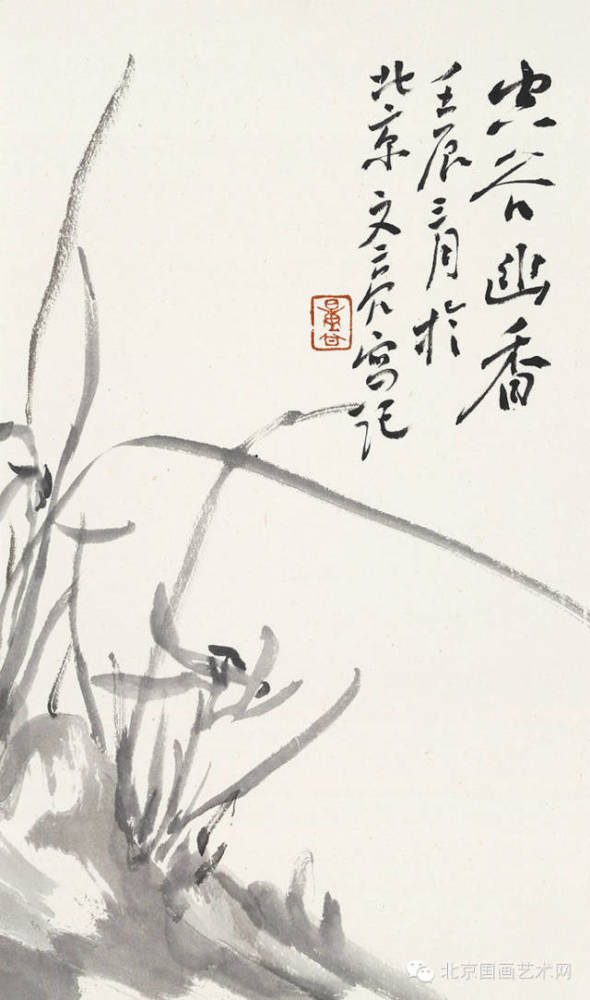 空谷幽香
壬辰三月於
北京文亮写记
北京国画艺术网